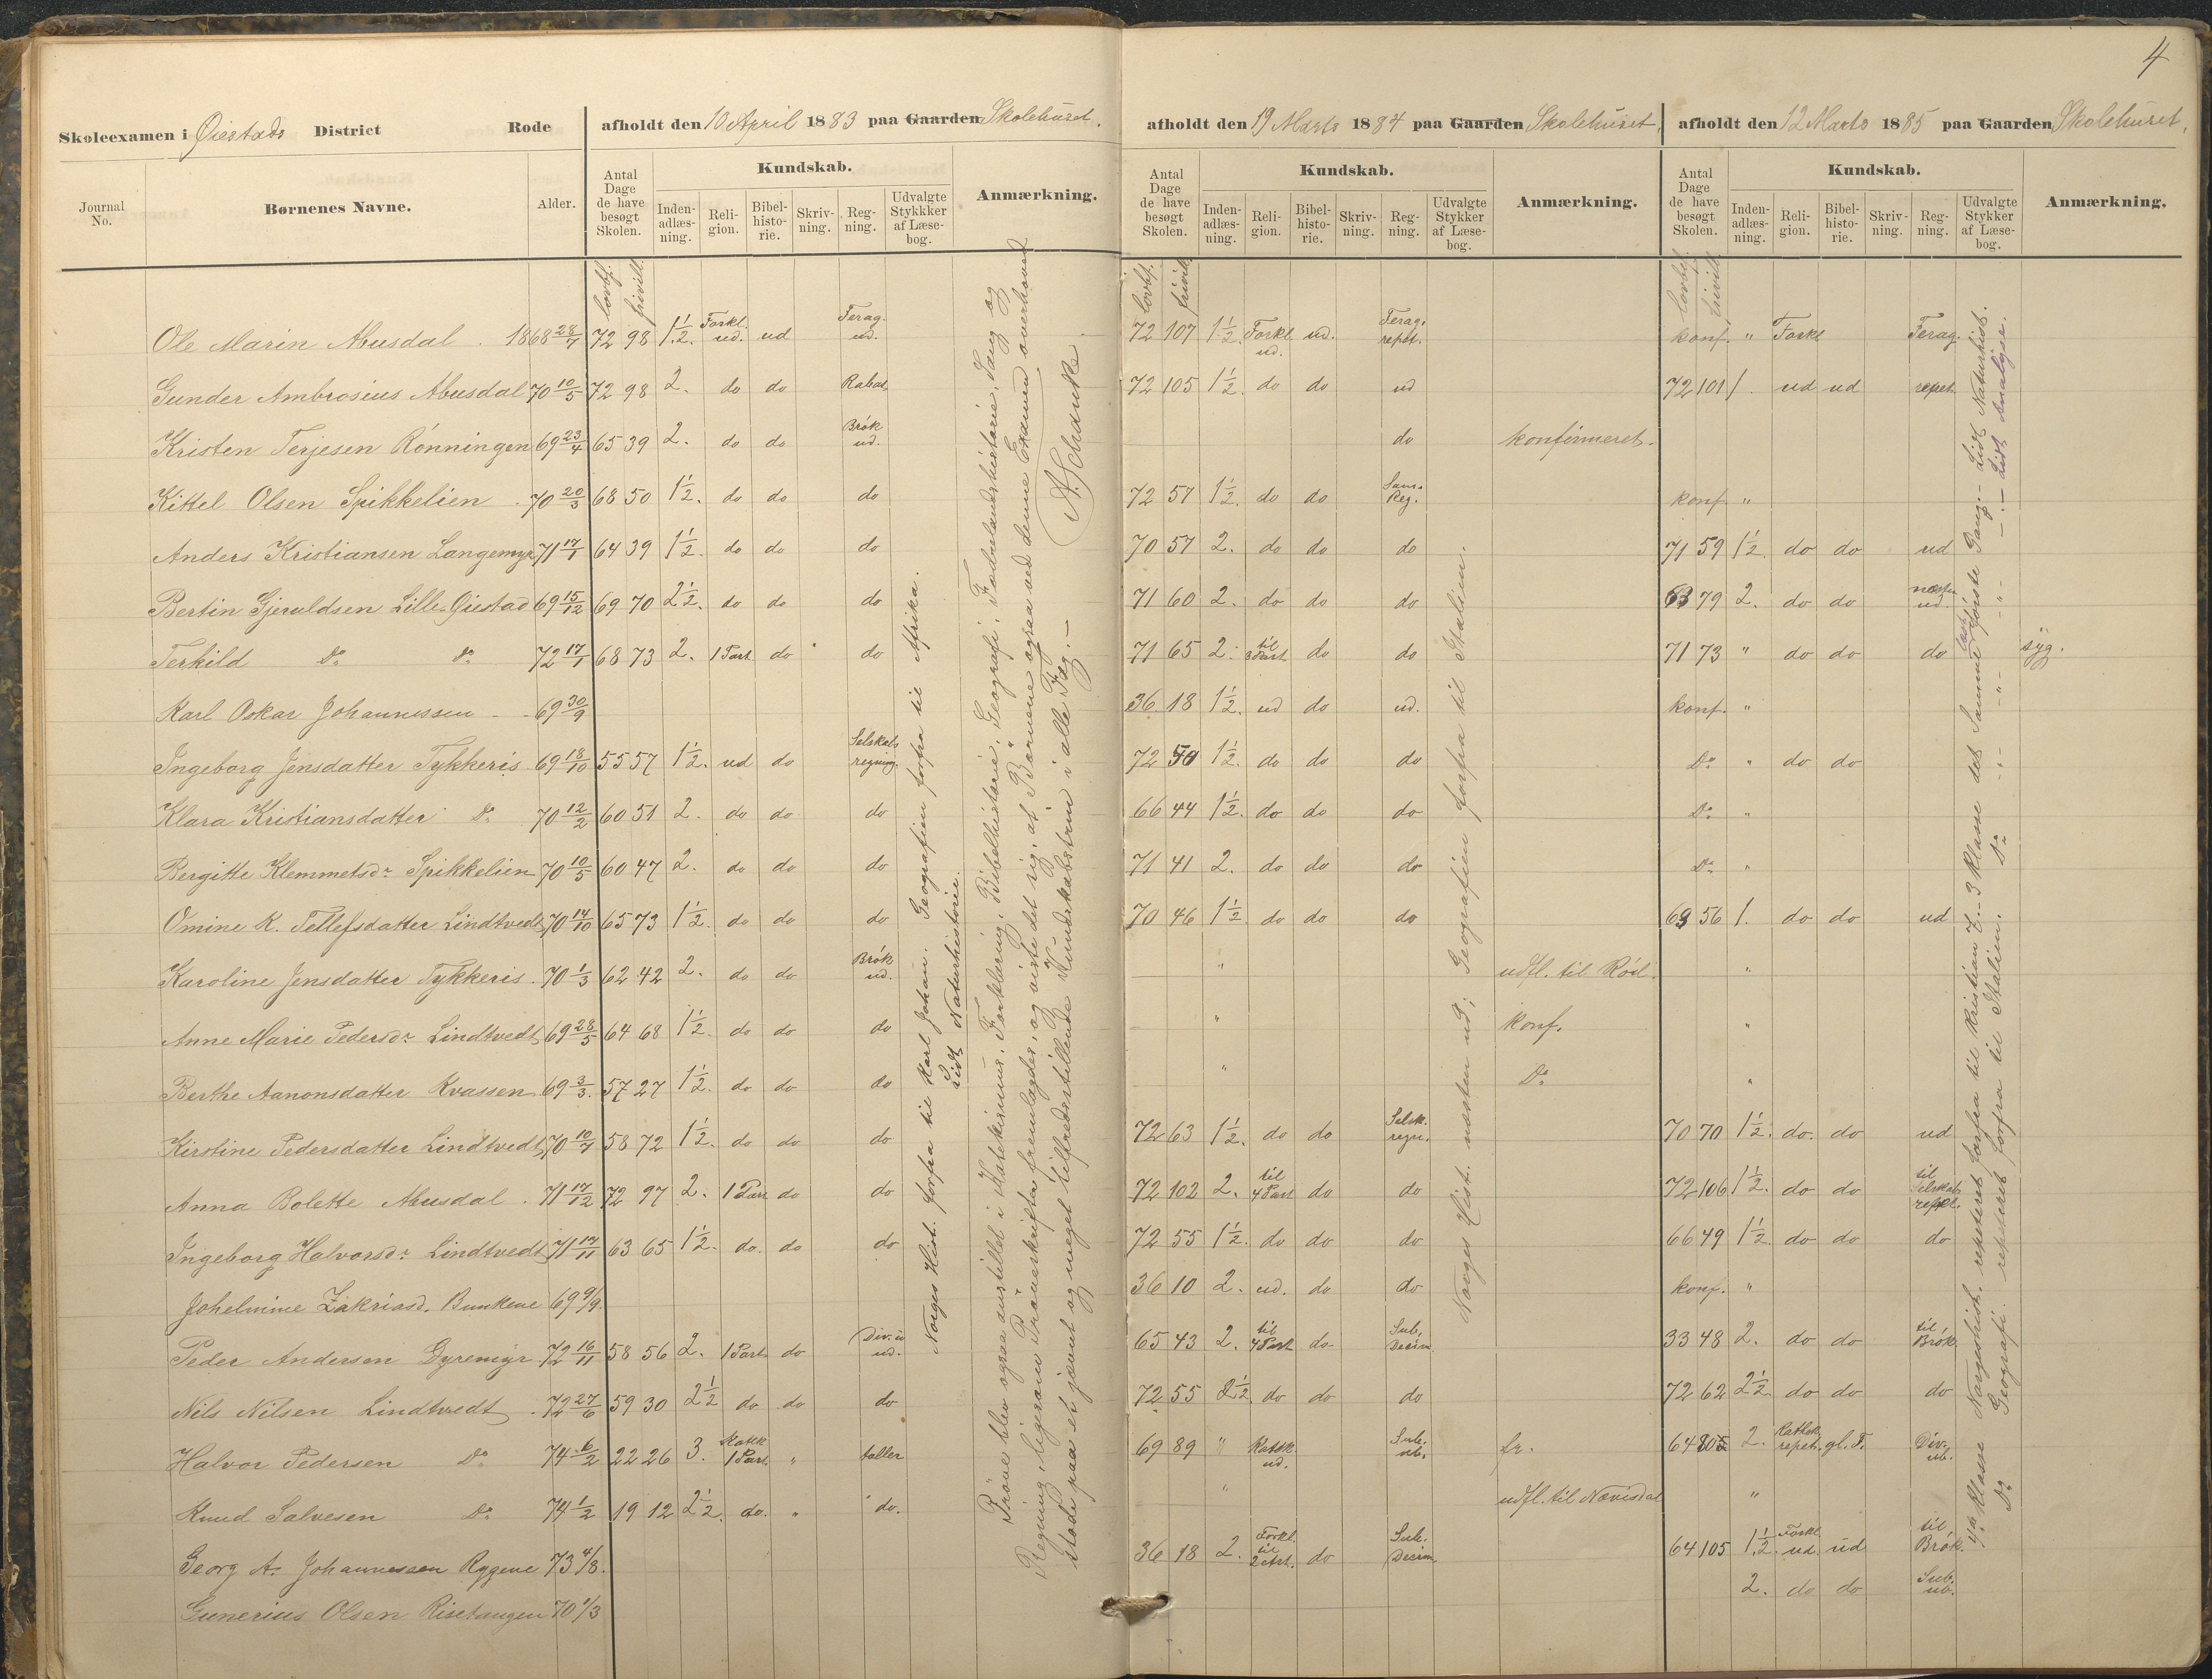 4
Skoleexamen i Øiestads District Rode
afholdt den 10 April 1883 paa Gaarden Skolehuset.
afholdt den 19 Marts 1884 paa Gaarden Skolehuset.
afholdt den 12 Marts 1885 paa Gaarden Skolehuset.
Journal No. Børnenes Navne. Alder. Antal Dage de have besøgt Skolen. Kundskab. Indenadlæsning. Religion. Bibelhistorie. Skrivning. Regning. Udvalgte Stykkker af Læsebog. Anmærkning.
Antal Dage de have besøgt Skolen. Kundskab. Indenadlæsning. Religion. Bibelhistorie. Skrivning. Regning. Udvalgte Stykker af Læsebog. Anmærkning.
Antal Dage de have besøgt Skolen. Kundskab. Indenadlæsning. Religion. Bibelhistorie. Skrivning. Regning. Udvalgte Stykker af Læsebog. Anmærkning.
lovbf. frivill. lovbf. frivill. lovbf. frivill.
Ole Marin Abusdal . 1868 28/7 72 98 1.1/2. Forkl. ud. ud Ferag. ud. 72 107 1 1/2. Forkl. ud. ud. Ferag. repet. konf. " Forkl Ferag.
Gunder Ambrosius Abusdal 70 10/5 72 98 2. do do Rabat 72 105 1 1/2. do do ud 72 101 1. ud ud repet.
Kristen Terjesen Rønningen 69 23/4 65 39 2. do do Brøk ud. do konfirmeret.
Kittel Olsen Spikkelien . 70 20/3 68 50 1 1/2. do do do 72 57 1 1/2. do do Sam. Reg. konf. "
Anders Kristiansen Langemyr 71 17/1 64 39 1 1/2. do do do 70 57 2. do do do 71 59 1 1/2. do do ud
Bertin Gjeruldsen Lille-Øiestad 69 15/12 69 70 2 1/2. do do do 71 60 2. do do do 63 79 2. do do næsten ud.
Terkild Do Do 72 17/1 68 73 2. 1 Part. do do 71 65 2. til 3 Part. do do 71 73 " do do do syg.
Karl Oskar Johannessen - - 69 30/9 36 18 1 1/2. ud do ud. konf. "
Ingeborg Jensdatter Tykkeris. 69 18/10 55 57 1 1/2. ud do Selskabsregning. 72 50 1 1/2. do do do Do " do do
Klara Kristiansdatter Do 70 12/2 60 51 2. do do do 66 44 1 1/2. do do do Do "
Bergitte Klemmetsdr Spikkelien 70 10/5 60 47 2. do do do 71 41 2. do do do Do "
Omine K. Tellefsdatter Lindtvedt 70 14/10 65 73 1 1/2. do do do 70 46 1 1/2. do do do 69 56 1. do do ud
Karoline Jensdatter Tykkeris. 70 1/3 62 42 2. do do Brøk ud. " udfl. til Röil. "
Anne Marie Pedersdr Lindtvedt 69 28/5 64 68 1 1/2. do do do " konf. "
Berthe Aanonsdatter Kvassen 69 3/3. 57 27 1 1/2. do do do " Do "
Kirstine Pedersdatter Lindtvedt 70 10/7 58 72 1 1/2. do do do 72 63 1 1/2. do do Selsk. regn. 70 70 1 1/2. do. do ud
Anna Bolette Abusdal . 71 17/12 72 97 2. 1 Part do do 72 102 2. til 4 Part do do 72 106 1 1/2. do do til Selskab. repet.
Ingeborg Halvorsdr Lindtvedt 71 14/11 63 65 1 1/2. do. do do 72 55 1 1/2. do do do 66 49 1 1/2. do do do
Johelmine Zakriasd. Bunkene 69 9/9. 36 10 2. ud. do do konf. "
Peder Andersen Gyremyr 72 16/11 58 56 2. 1 Part do Div. ud. 65 43 2. til 4 Part do Sub. Decim. 33 48 2. do do til Brök.
Nils Nilsen Lindtvedt . 72 27/6 59 30 2 1/2 do do do 72 55 2 1/2 do do do 72 62 2 1/2 do do do
Halvor Pedersen Do 74 6/2 22 26 3. Katek 1 Part. " taller 69 89 " Katek. ud. Sub. ub. fr. 64 105 2. Kathek. repet. gl. T. Div. ub.
Knud Salvesen Do 74 1/2 19 12 2 1/2. do. " do. " udfl. til Nævisdal "
Georg A. Johannessen Rygene 73 4/8. 36 18 2. Forkl. til 2 Art. do Sub. Decim. 64 105 1 1/2. Forkl. ud. ud til Brök.
Gunerius Olsen Risetangen 70 1/3 2. do do Sub. ub.
Norges Hist. forfra til Karl Johan. Geografien forfra til Afrika.
Lidt Naturhistorie.
Pröve blev ogsaa anstillet i Katekismus, Forklaring, Bibelhistorie, Geografi, Fædrelandshistorie, Sang og
Regning, ligesom Pröveskrifter fremlagdes, og viste det sig, at Börnene ogsaa ved denne Examen overhoved
stode paa et jævnt og meget tilfredsstillende Kundskabstrin i alle Fag. -
A. Schanke
Norges Hist. næsten ud; Geografien forfra til Italien.
4de Klasse Norgeshist. repeteret forfra til Kristian 7. - 3 Klasse det Samme læst förste Gang. - Lidt Naturhist.
Do Geografi. repeteret forfra til Italien. Do - " - - " - - " - - . - Lidt Analyse.